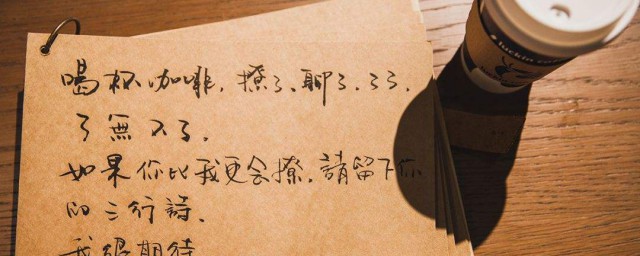 喝杯咖啡,撩了、聊了、了了、
了無入了、
如果你比我更会撩,請留下你
的三行詩、
我很期待
luckin